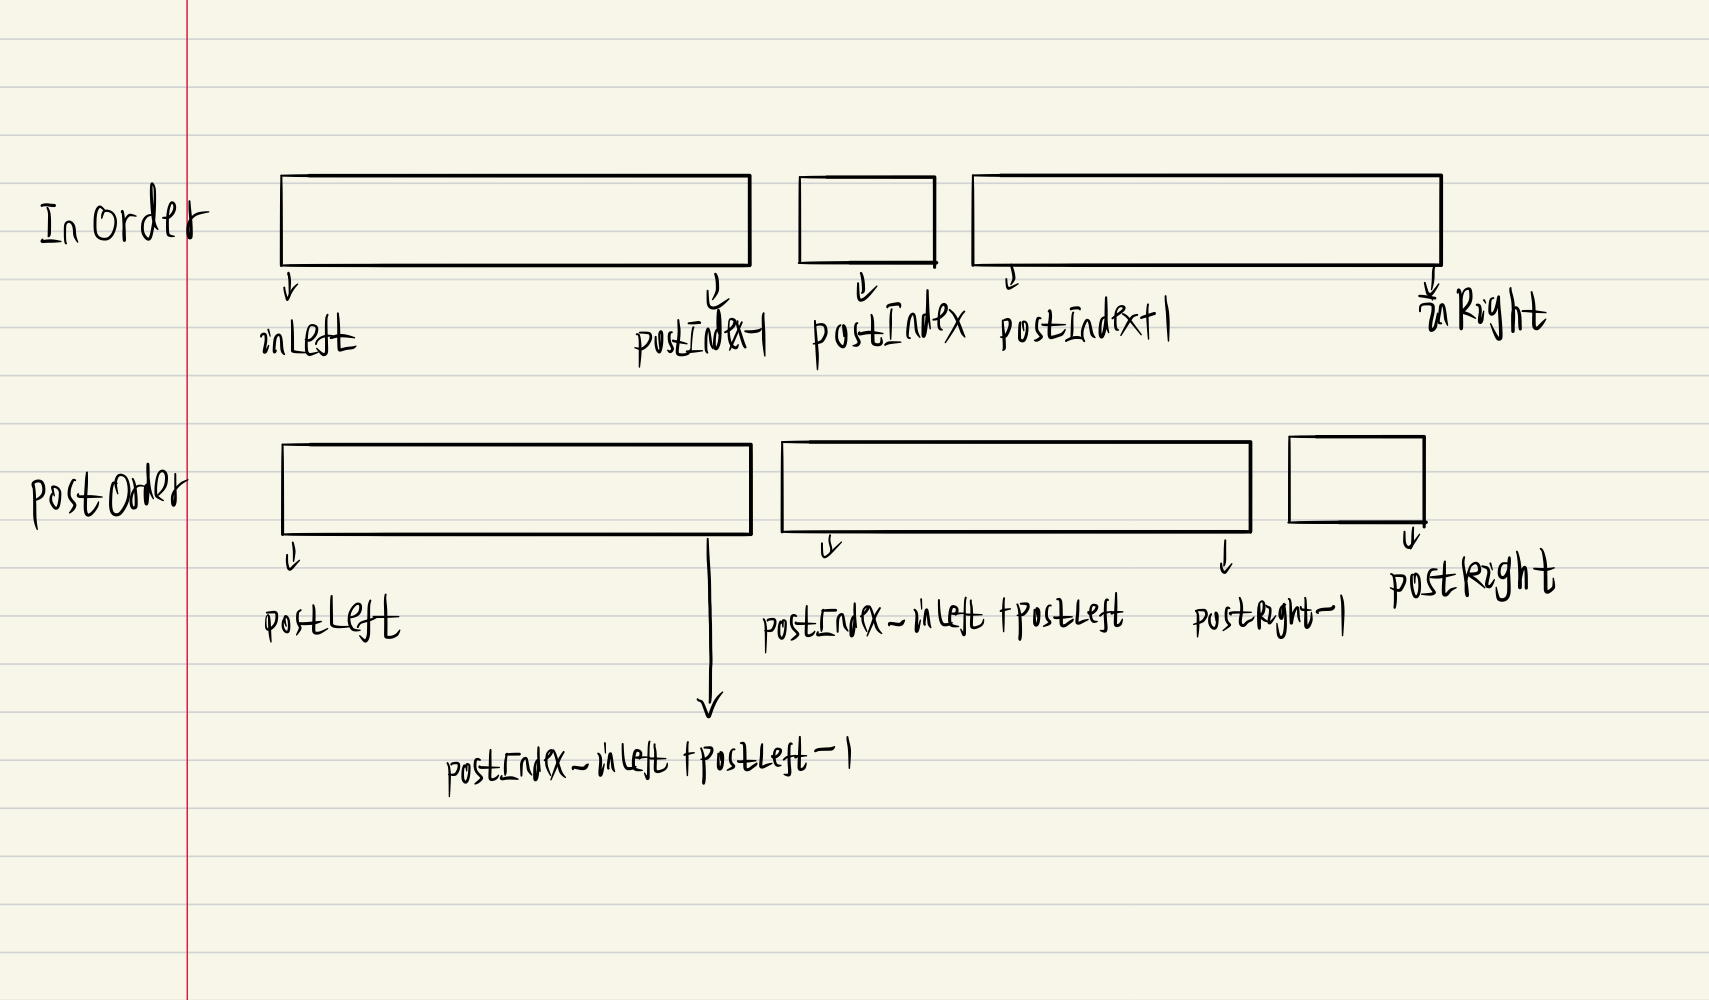 InOrder
inLeft postIndex-1 postIndex postIndex+1 inRight
postOrder
postRight
postLeft postIndex-inLeft+postLeft postRight-1
postIndex-inLeft+postLeft-1